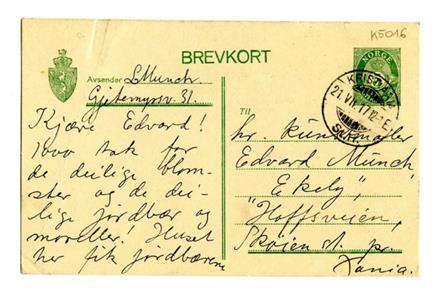 K5016
BREVKORT
NORGE
Avsender L Munch.
Gjetemyrsv. 31.
KRISTIANIA
21 VII 17
Kjære Edvard!
1000 tak for
de deilige blom-
ster og de dei-
lige jordbær og
moreller! Huset
her fik jordbærene
Til
hr. kunstmaler
Edvard Munch,
Ekely,
"Hoffsveien,
Skøien st. pr.
Xania.